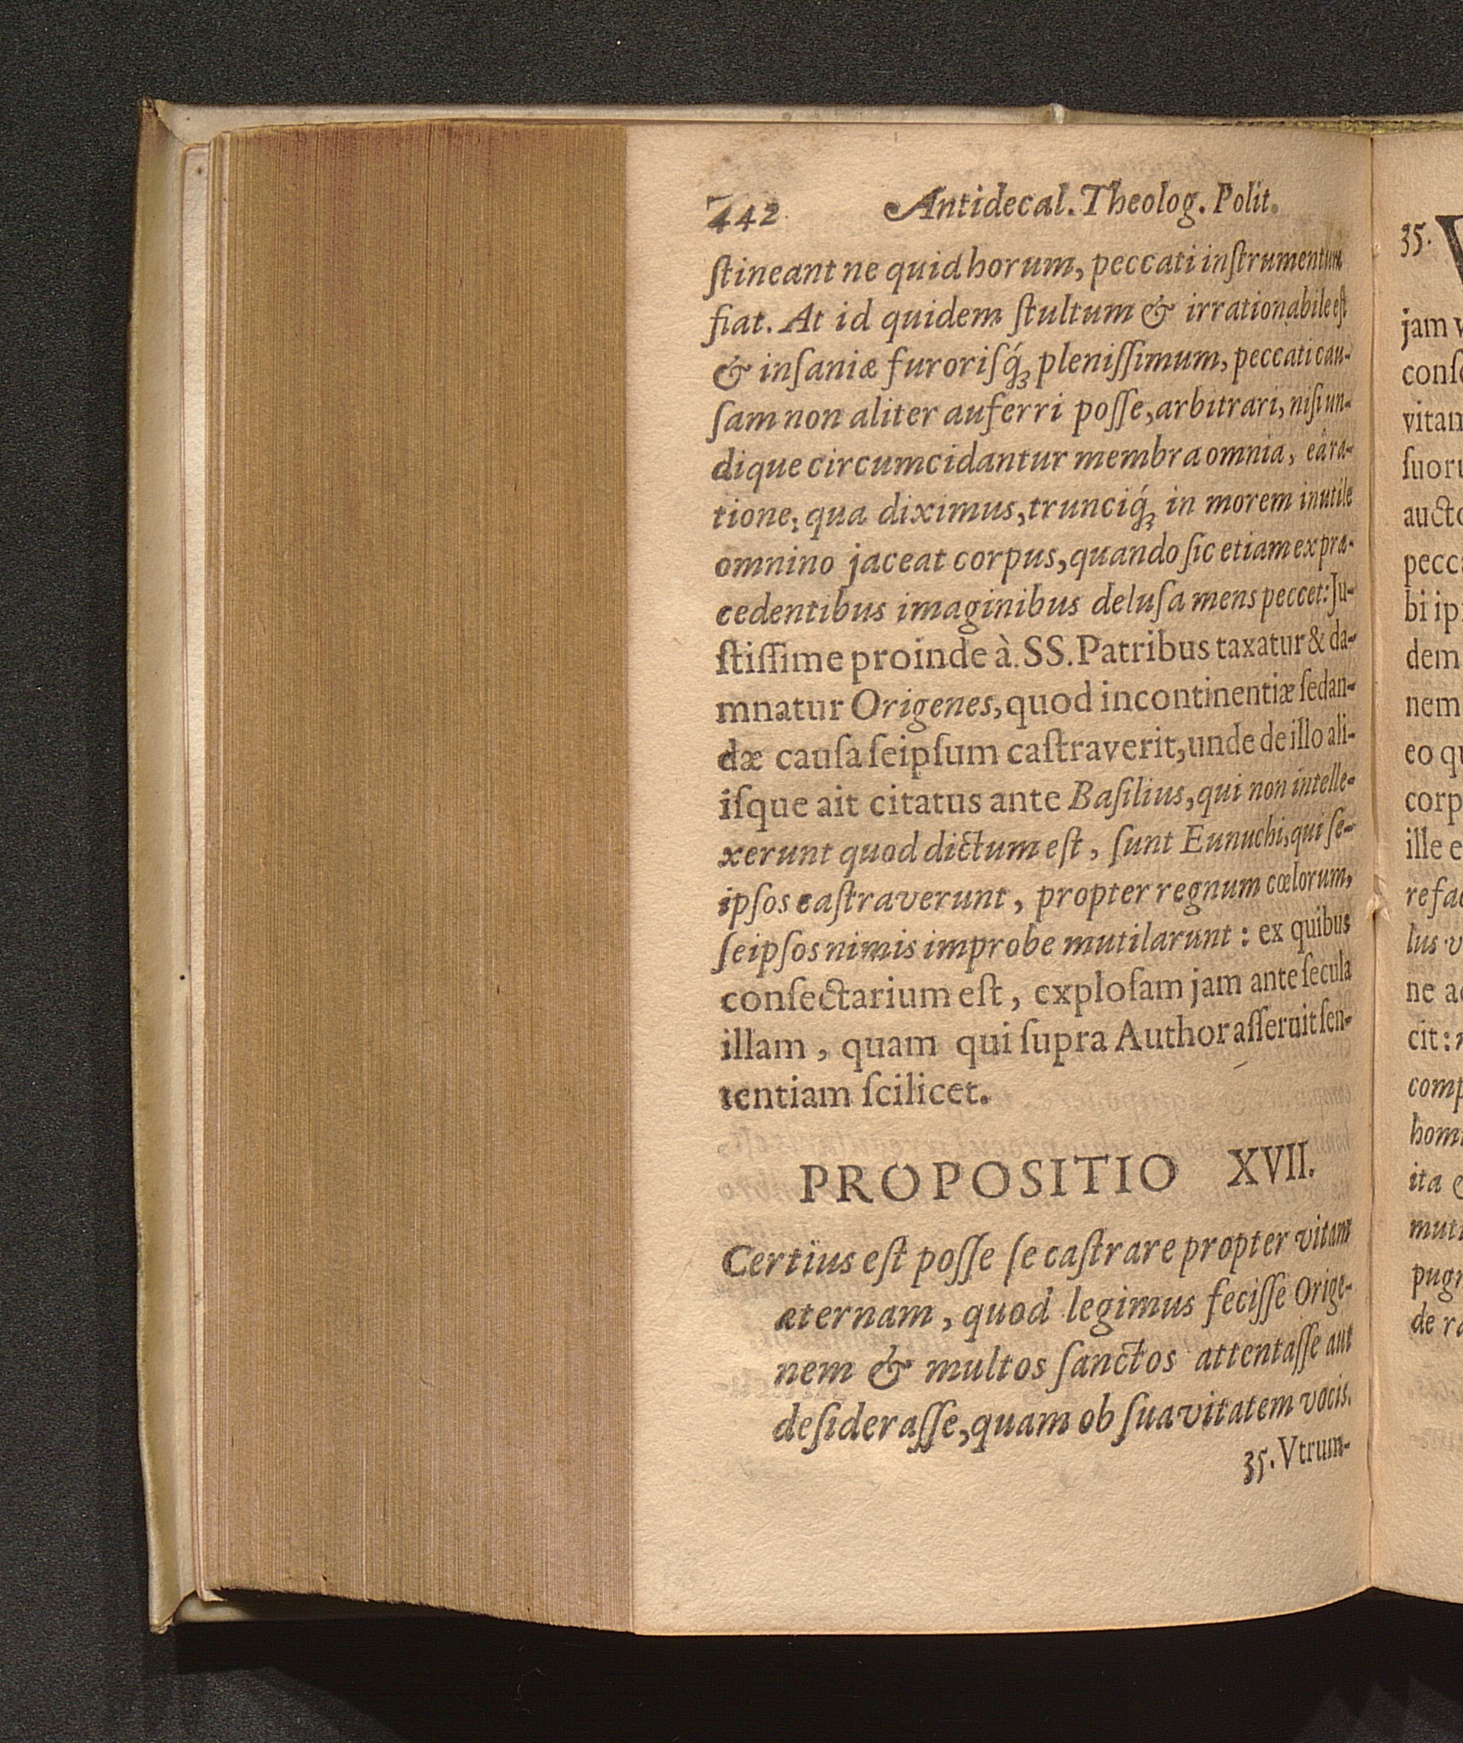 442 Antidecal. Theolog. Polit.
ſtineant ne quid horum, peccati inſtrumentum
fiat. At id quidem ſtultum & irrationabile eſt
& inſaniæ furoriſq́; pleniſſimum, peccati cau-
ſam non aliter auferri poſſe, arbitrari, niſi un-
dique circumcidantur membra omnia, eâ ra-
tione; qua diximus, trunciq́; in morem inutile
omnino jaceat corpus, quando ſic etiam ex præ-
cedentibus imaginibus deluſa mens peccet: Ju-
ſtiſſime proinde à SS. Patribus taxatur & da-
mnatur Origenes, quod incontinentiæ ſedan-
dæ cauſa ſeipſum caſtraverit, unde de illo ali-
iſque ait citatus ante Baſilius, qui non intelle-
xerunt quod dictum eſt, ſunt Eunuchi, qui ſe-
ipſos caſtraverunt, propter regnum cœlorum,
ſeipſos nimis improbe mutilarunt: ex quibus
conſectarium eſt, exploſam jam ante ſecula
illam, quam qui ſupra Author aſſeruit ſen-
tentiam ſcilicet.
PROPOSITIO XVII.
Certius eſt poſſe ſe caſtrare propter vitam
æternam, quod legimus feciſſe Orige-
nem & multos ſanctos attentaſſe aut
deſideraſſe, quam ob ſuavitatem vocis.
35. Vtrum-
35.
jam
vitam
pecc
bi
dem
nem
eo
corp
ille
lus
ne
cit:
comp
ita
de